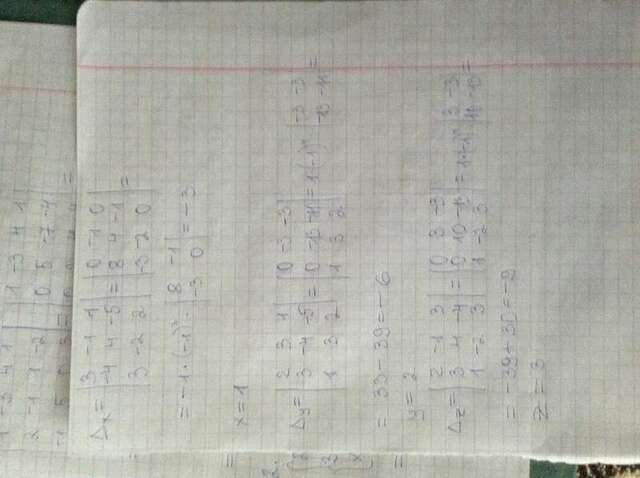 1 -3 4 1 | 1 -3 4 1
2 -1 1 -2 | 0 5 -7 -4
Δx = |3 -1 1; -4 4 -5; 3 -2 2| = |0 -1 0; 8 4 -1; -3 -2 0| =
= -1·(-1)³· |8 -1; -3 0| = -3
x = 1
2.
Δy = |2 3 1; 3 -4 -5; 1 3 2| = |0 -3 -3; 0 -13 -11; 1 3 2| = 1·(-1)⁴ |-3 -3; -13 -11| =
= 33 - 39 = -6
y = 2
Δz = |2 -1 3; 3 4 -4; 1 -2 3| = |0 3 -3; 0 10 -13; 1 -2 3| = 1·(-1)⁴ |3 -3; -13| =
= -39 + 30 = -9
z = 3